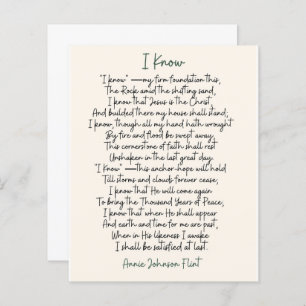 I Know
"I know" —my firm foundation this,
The Rock amid the shifting sand,
I know that Jesus is the Christ,
And builded there my house shall stand;
I know, though all my hand hath wrought
By fire and flood be swept away,
This cornerstone of faith shall rest
Unshaken in the last great day.
"I Know" —this anchor-hope will hold
Till storms and clouds forever cease;
I know that He will come again
To bring the Thousand Years of Peace,
I know that when He shall appear
And earth and time for me are past,
When in His likeness I awake
I shall be satisfied at last.
Annie Johnson Flint